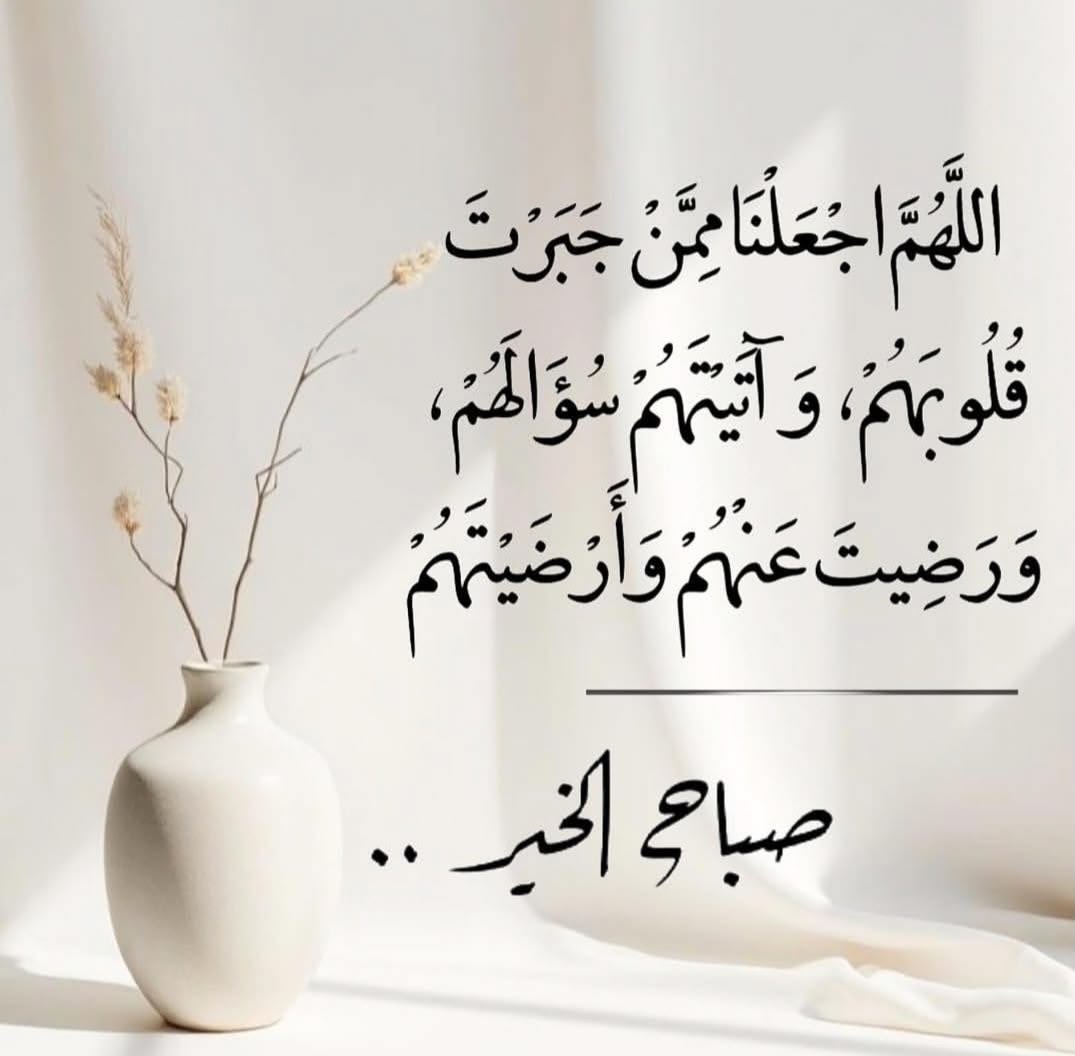 اللَّهُمَّ اجْعَلْنَا مِمَّنْ جَبَرْتَ
قُلُوبَهُمْ، وَآتَيْتَهُمْ سُؤَالَهُمْ،
وَرَضِيتَ عَنْهُمْ وَأَرْضَيْتَهُمْ
صباح الخير ..